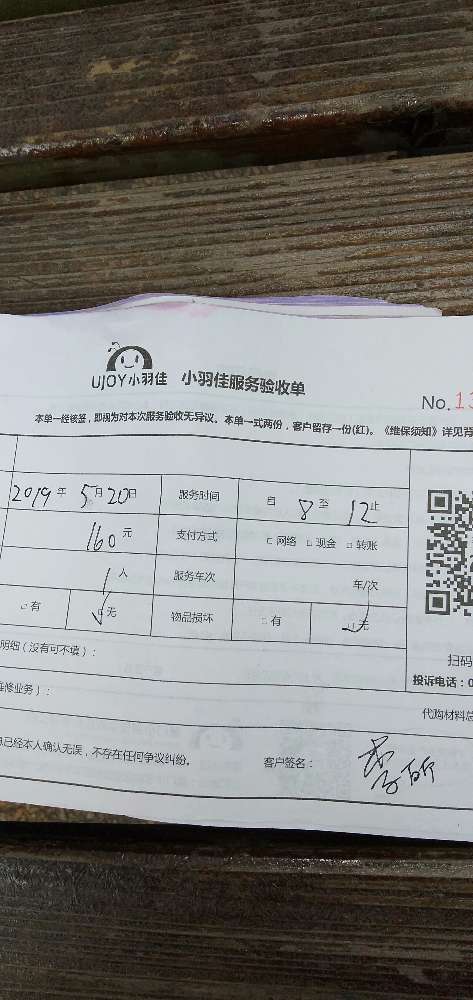 UJOY小羽佳 小羽佳服务验收单
No.
本单一经核签，即视为对本次服务验收无异议。本单一式两份，客户留存一份(红)。《维保须知》详见背
2019年 5月20日 服务时间 自 8 至 12 止
160元 支付方式 □网络 □现金 □转账
1人 服务车次 车/次
□有 □无 物品损坏 □有 □无
扫码
明细（没有可不填）：
投诉电话：0
维修业务）：
代购材料总
息已经本人确认无误，不存在任何争议纠纷。 客户签名：